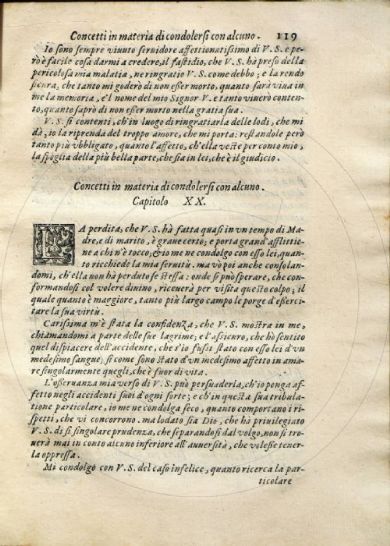 Concetti in materia di condolersi con alcuno. 119
Io sono sempre viuuto seruidore affettionatissimo di V. S. e pe-
rò è facile cosa darmi a credere, il fastidio, che V. S. hà preso della
pericolosa mia malatia, ne ringratio V. S. come debbo; e la rendo
sicura, che tanto mi goderò di non esser morto, quanto sarà viua in
me la memoria, e'l nome del mio Signor V. e tanto viuerò conten-
to, quanto saprò di non esser morto nella gratia sua.
V. S. si contenti, ch'in luogo di ringratiarla delle lodi, che mi
dà, io la riprenda del troppo amore, che mi porta: restandole però
tanto più vbbligato, quanto l'affetto, ch'ella veste per conto mio,
la spoglia della più bella parte, che sia in lei, che è il giudicio.
Concetti in materia di condolersi con alcuno.
Capitolo XX.
LA perdita, che V. S. hà fatta quasi in vn tempo di Ma-
dre, e di marito, è graue certo; e porta grand'afflittio-
ne a chi n'è tocco, & io me ne condolgo con esso lei, quan-
to ricchiede la mia seruitù. ma vò poi anche consolan-
domi, ch'ella non hà perduto se stessa: onde si può sperare, che con-
formandosi col volere diuino, riceuerà per visita questo colpo; il
quale quanto è maggiore, tanto più largo campo le porge d'eserci-
tare la sua virtù.
Carissima m'è stata la confidenza, che V. S. mostra in me,
chiamandomi a parte delle sue lagrime; e l'assicuro, che hò sentito
quel dispiacere dell'accidente, che s'io fussi stato con esso lei d'vn
medesimo sangue, si come sono stato d'vn medesimo affetto in ama-
re singolarmente quegli, che è fuor di vita.
L'osseruanza mia verso di V. S. può persuaderla, ch'io ponga af-
fetto negli accidenti suoi d'ogni sorte; e ch'in questa sua tribula-
tione particolare, io me ne condolga seco, quanto comportano i ri-
spetti, che vi concorrono. ma lodato sia Dio, che hà priuilegiato
V. S. di sì singolare prudenza, che separandosi dal volgo, non si tro-
uerà mai in conto alcuno inferiore all'auuersità, che volesse tener-
la oppressa.
Mi condolgo con V. S. del caso infelice, quanto ricerca la par-
ticolare